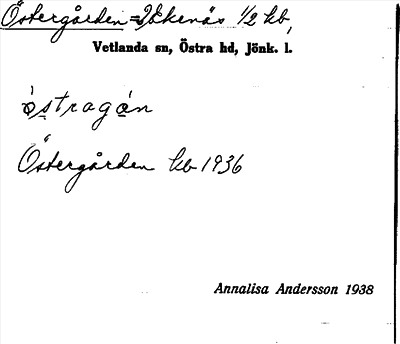 Östergården = Ekenäs 1/2 hb,
Vetlanda sn, Östra hd, Jönk. l.
östragan
Östergården hb 1936
Annalisa Andersson 1938